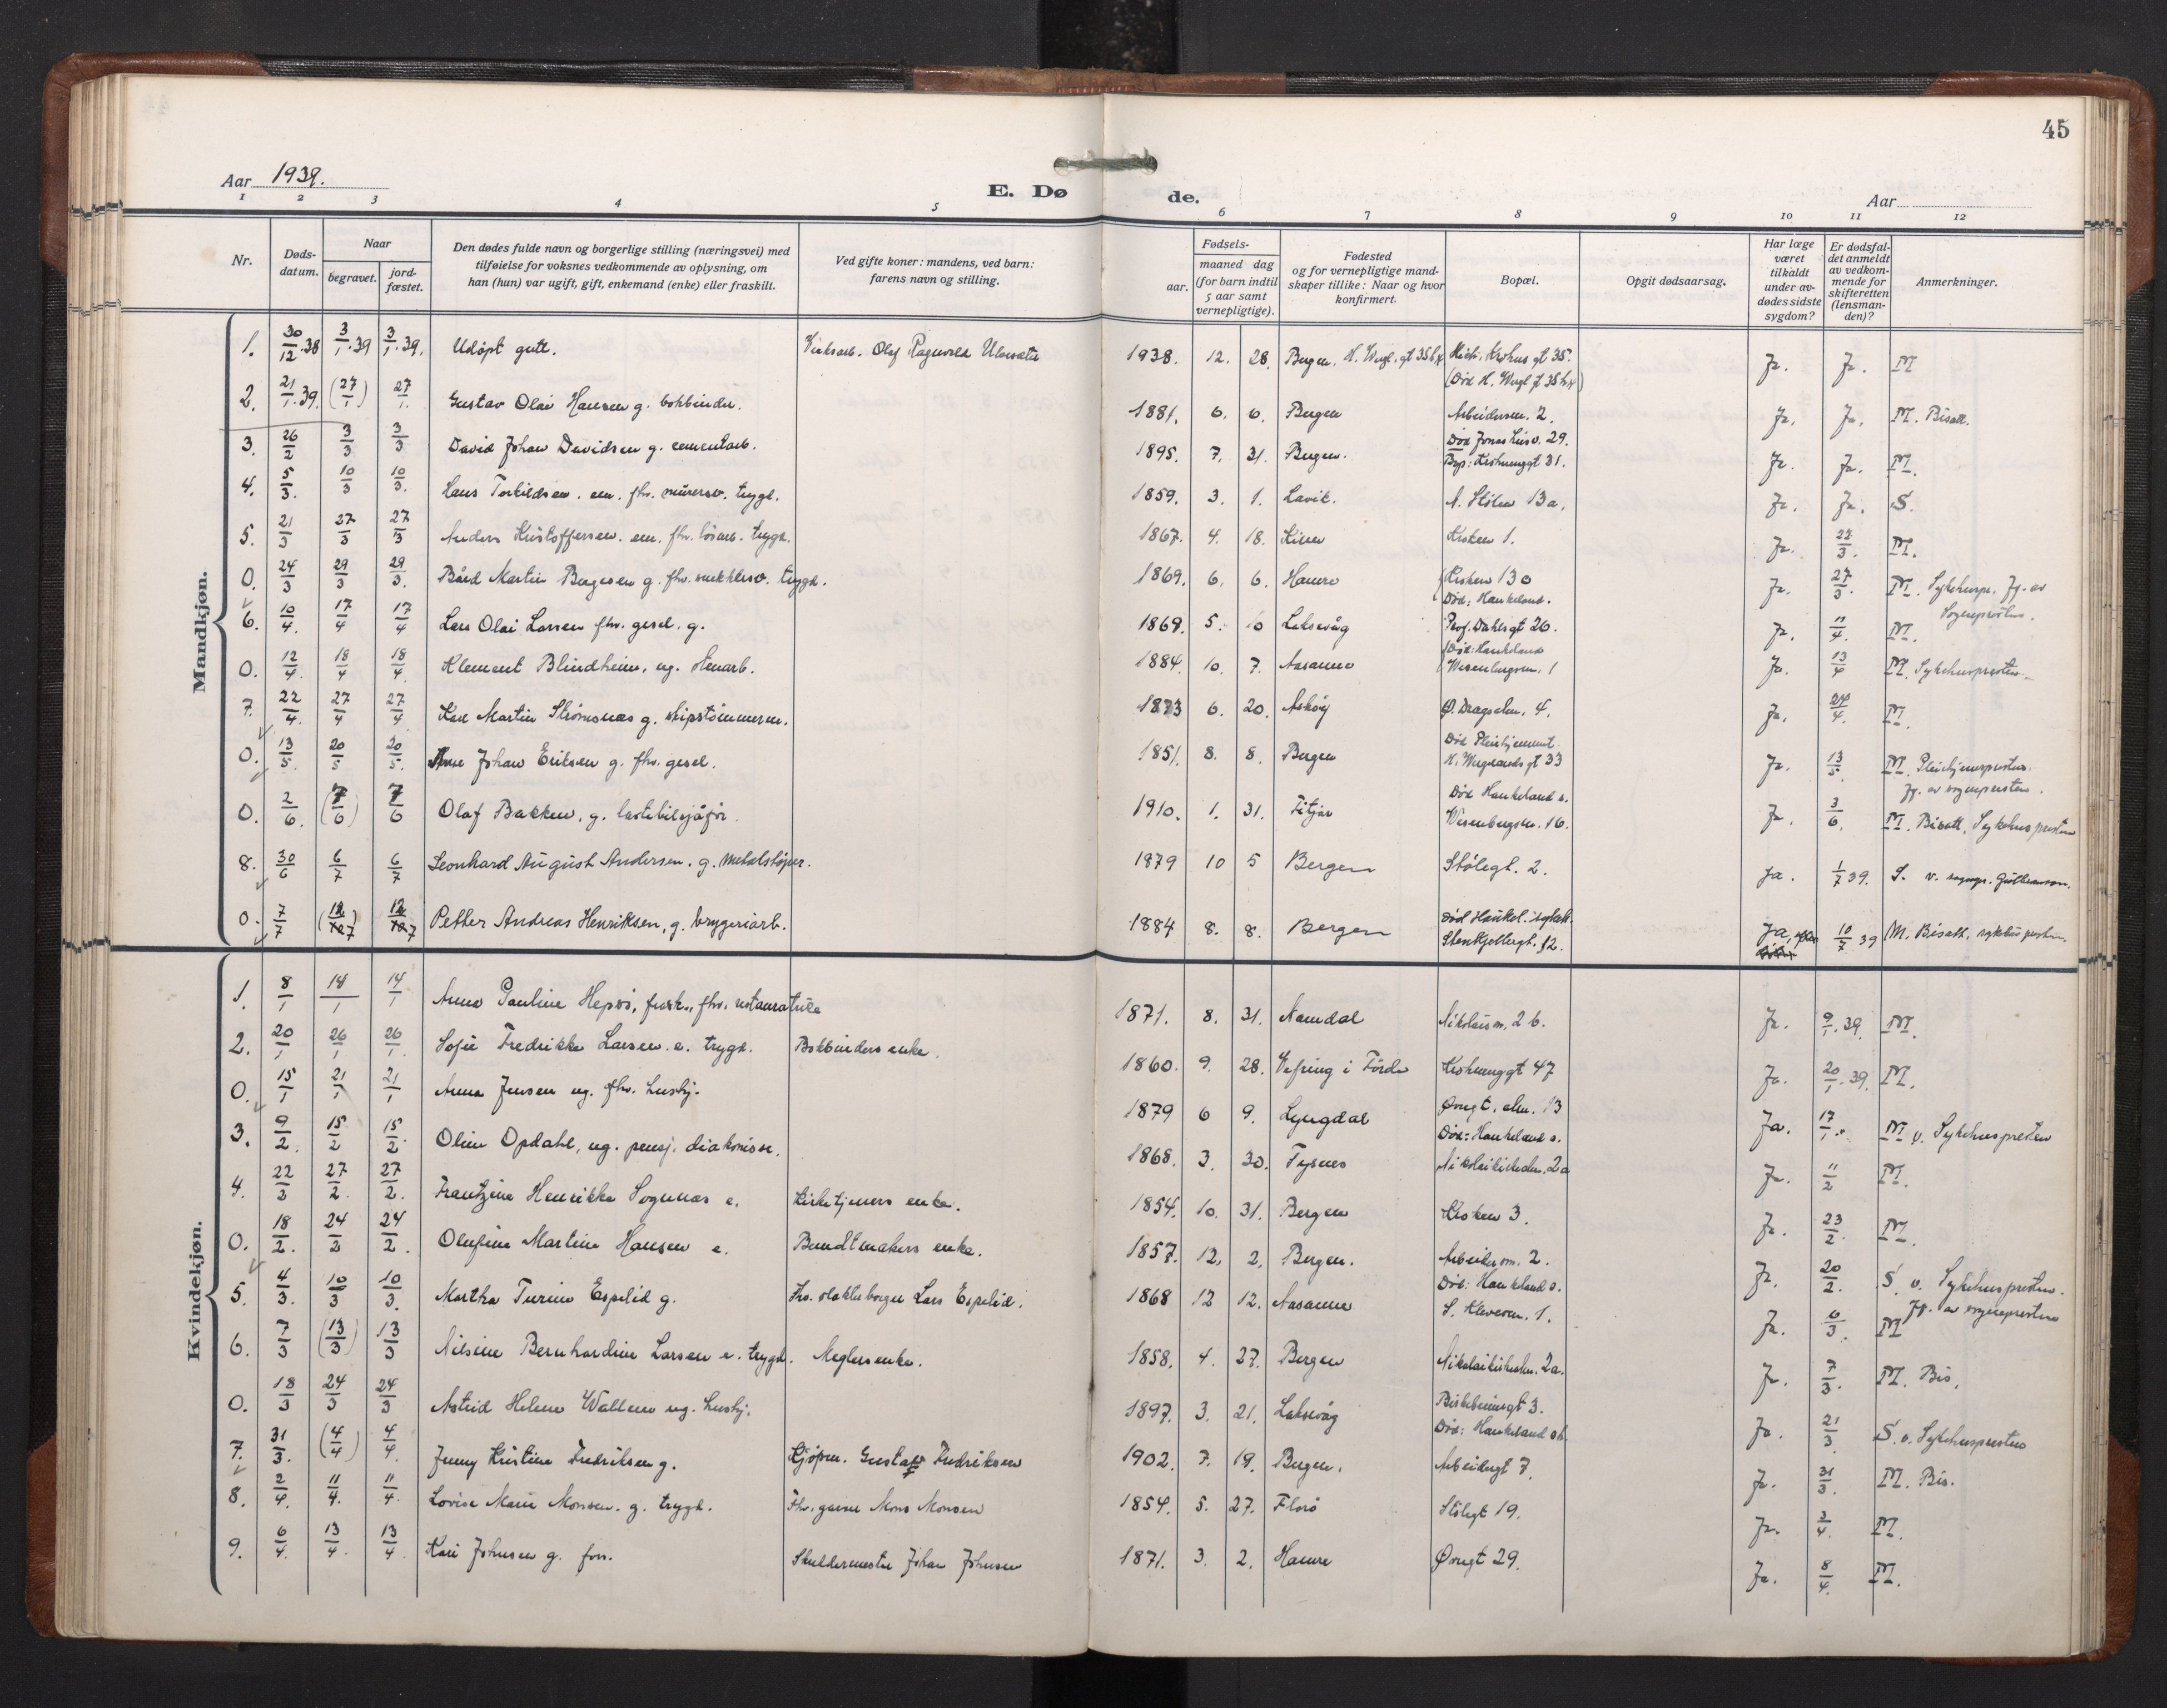 45
Aar 1939.
E. Døde.
Aar
1 2 3 4 5 6 7 8 9 10 11 12
Nr.
Døds-
datum.
Naar
begravet.
jord-
fæstet.
Den dødes fulde navn og borgerlige stilling (næringsvei) med
tilføielse for voksnes vedkommende av oplysning, om
han (hun) var ugift, gift, enkemand (enke) eller fraskilt.
Ved gifte koner: mandens, ved barn:
farens navn og stilling.
Fødsels-
aar.
maaned dag
(for barn indtil
5 aar samt
vernepligtige).
Fødested
og for vernepligtige mand-
skaper tillike: Naar og hvor
konfirmert.
Bopæl.
Opgit dødsaarsag.
Har læge
været
tilkaldt
under av-
dødes sidste
sygdom?
Er dødsfal-
det anmeldt
av vedkom-
mende for
skifteretten
(lensman-
den)?
Anmerkninger.
Mandkjøn.
1. 30/12.38 3/1.39 3/1.39. Udøpt gutt. Olaf Ragnvald 1938. 12. 28. Bergen. Ja. Ja. M
2. 21/1.39. (27/1) 27/1. Gustav Olai Hansen g. bokbinder. 1881. 6. 6. Bergen Arbeidersm. 2. Ja. Ja. M. Bisatt.
3. 26/2 3/3 3/3 David Johan Davidsen g. cementarb. 1895. 7. 31. Bergen. Død Jonas Liesv. 29. Ja. Ja. M.
4. 5/3. 10/3 10/3. Hans Torkildsen. em. fhv. murersv. trygd. 1859. 3. 1. Lavik. N. Stølen 13a. Ja. Ja. S.
5. 21/3 27/3 27/3 Anders Kristoffersen. em. fhv. løsarb. trygd. 1867. 4. 18. Kinn 1. Ja. 22/3. M.
0. 24/3 29/3 29/3. Bård Martin Bergesen g. fhv. trygd. 1869. 6. 6. Hamre 13 Død: Haukeland. Ja. 27/3. M. Sykehuspr. Jf. av Sognepresten.
6. 10/4. 17/4 17/4 Lars Olai Larsen fhv. gesel. g. 1869. 5. 10 Laksevåg Prof. Dahlsgt 26. Ja. 11/4. M.
0. 12/4. 18/4 18/4 Klement Blindheim, ug. stenarb. 1884. 10. 7. Aasanne Død: Haukeland Wesenbergsm. 1 Ja. 13/4 M. Sykehuspresten
7. 22/4. 27/4 27/4 Karl Martin Strømsnæs g. skipstømmerm. 1873 6. 20. Askøy Ø. Dragsalm. 4. Ja. 24/4. M.
0. 13/5. 20/5 20/5. Johan Eriksen g. fhv. gesel. 1851. 8. 8. Bergen Død Pleiehjemmet H. Wergelandsgt 33 Ja. 13/5. M. Pleiehjemspresten. Jf. av sognepresten.
0. 2/6. (7/6) 7/6 Olaf Bakken, g. lastebilsjåfør. 1910. 1. 31. Fitjar Død Haukeland s. Wesenbergsm. 16. Ja. 3/6. M. Bisatt, Sykehuspresten
8. 30/6 6/7 6/7 Leonhard August Andersen. g. metalstøper. 1879 10 5 Bergen Stølegt. 2. Ja. 1/7 39. S.
0. 7/7 (12/7) 12/7 Petter Andreas Henriksen, g. bryggeriarb. 1884 8. 8. Bergen Død Haukel. sykeh. Ja, 10/7 39 M. Bisatt.
Kvindekjøn.
1. 8/1 14/1 14/1 Anna Pauline Hepsø, frask., fhv. restauratrice 1871. 8. 31. Namdal Nikolaism. 2 b. Ja. 9/1.39. M.
2. 20/1 26/1 26/1 Sofie Fredrikke Larsen. e. trygd. Bokbinders enke. 1860. 9. 28. Vefring i Førde 47 Ja. 20/1.39. M.
0. 15/1 21/1 21/1 Anna Jensen ug. fhv. husbj. 1879 6 9. Lyngdal Øvregt. alm. 13 Død: Haukeland s. Ja. 17/1. M v. Sykehuspresten
3. 9/2. 15/2 15/2. Oline Opdahl, ug. pensj. diakonisse. 1868. 3. 30. Tysnes Nikolaikirkealm. 2a Ja. 11/2 M.
4. 22/2 27/2. 27/2. Frantzine Henrikke Sognnæs e. Kirketjeners enke. 1854. 10. 31. Bergen 3. Ja. 23/2. M.
0. 18/2. 24/2 24/2. Olufine Martine Hansen e. Buntmakers enke. 1857. 12. 2. Bergen. Arbeidersm. 2. Død: Haukeland s. Ja. 20/2. S. v. Sykehuspresten. Jf. av sognepresten
5. 4/3. 10/3 10/3. Martha Turine Espelid g. Lars Espelid. 1868 12 12. Aasanne S. Kleverm. 1. Ja. 6/3. M
6. 7/3 (13/3) 13/3 Nilsine Bernhardine Larsen e. trygd. Meglers enke. 1858. 4. 27. Bergen Nikolaikirkealm. 2a. Ja. 7/3. M. Bis.
0. 18/3 24/3 24/3 Astrid Helene Wallem ug. husbj. 1897. 3. 21. Laksevåg 3. Død: Haukeland sh. Ja. 21/3. S. v. Sykehuspresten
7. 31/3. (4/4) 4/4. Jenny Kristine Fredriksen g. Kjøpm. Gustav Fredriksen 1902. 7. 19. Bergen. Arbeidergt 7. Ja. 31/3. M. Bis.
8. 2/4. 11/4. 11/4. Lovise Marie Monsen. g. trygd. Mons Monsen 1854. 5. 27. Florø Stølegt 19. Ja. 3/4. M.
9. 6/4. 13/4. 13/4. Kari Johnsen g. fors. Johan Johnsen 1871. 3. 2. Hamre Øvregt 29. Ja. 8/4. M.